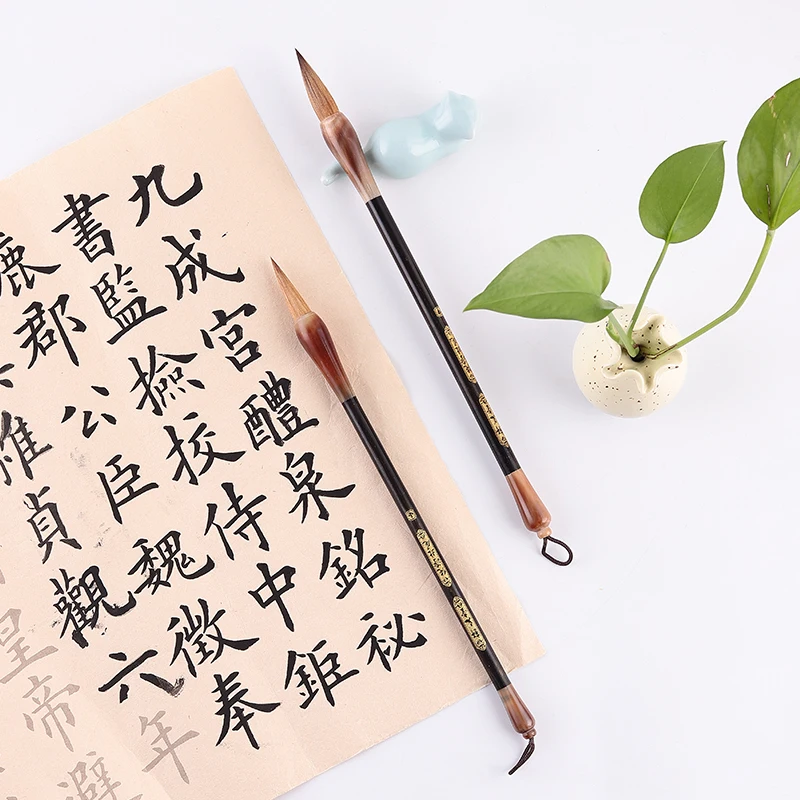 九成宮醴泉銘祕
書監撿挍侍中鉅
鹿郡公臣魏徵奉
維貞觀六年
皇帝避